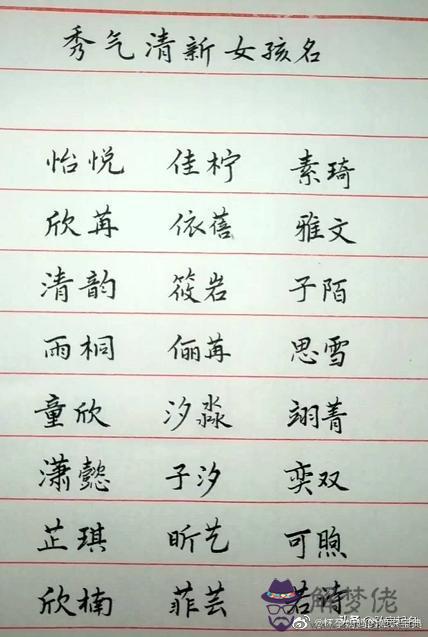 秀气清新女孩名
怡悦 佳柠 素琦
欣苒 依蓓 雅文
清韵 筱岩 子陌
雨桐 俪苒 思雪
童欣 汐淼 翊菁
潇懿 子汐 奕双
芷琪 昕艺 可煦
欣楠 菲芸 若
解梦佬